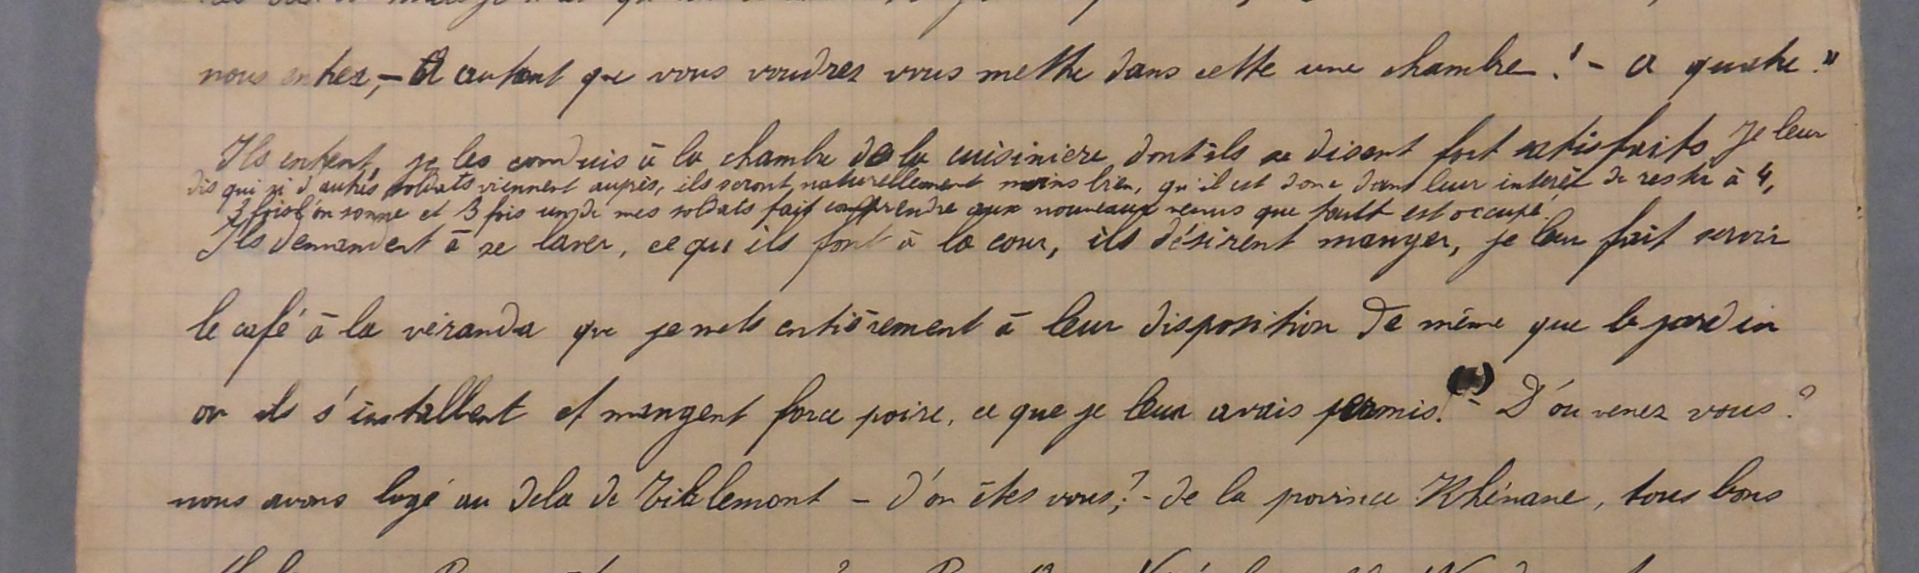 nous entrez, – A autant que vous voudrez vous mettre dans cette une chambre ! – a quatre."
Ils entrent, je les conduis à la chambre de la cuisiniere, dont ils se disent fort satisfaits Je leur
dis qui si d'autres soldats viennent auprès, ils seront, naturellement moins bien, qu'il est donc dans leur interêt de rester à 4,
3 fois l'on sonne et 3 fois un de mes soldats fait comprendre aux nouveaux venus que tout est occupé.
Ils demandent à se laver, ce qu'ils font à la cour, ils désirent manger, je leur fait servir
le café à la véranda que je mets entièrement à leur disposition de même que le jardin
ou ils s'installent et mangent force poire, ce que je leur avais permis. – D'ou venez vous ?
nous avons logé au dela de – d'ou êtes vous,? – de la province Rhénane, tous bons